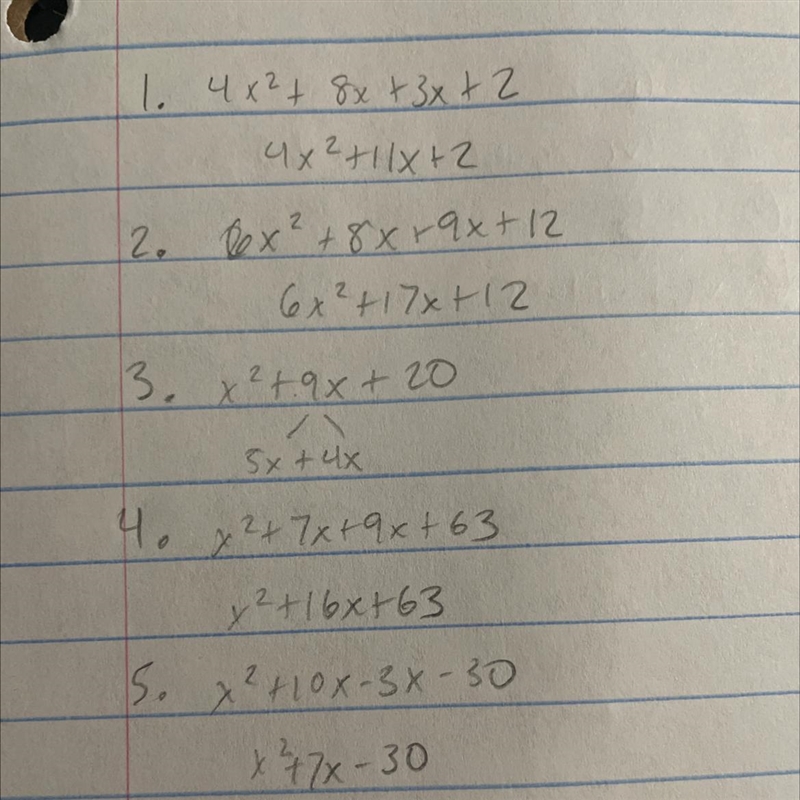 1. 4x² + 8x + 3x + 2
4x² + 11x + 2
2. 6x² + 8x + 9x + 12
6x² + 17x + 12
3. x² + 9x + 20
5x + 4x
4. x² + 7x + 9x + 63
x² + 16x + 63
5. x² + 10x - 3x - 30
x² + 7x - 30